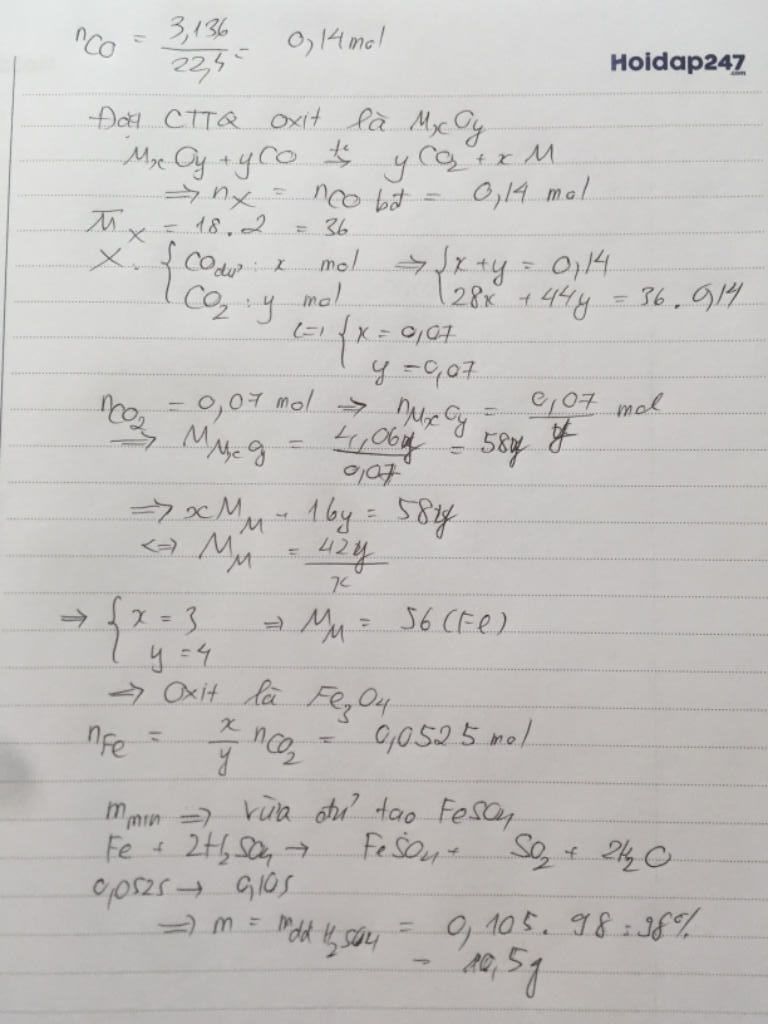 nCO = 3,136/22,4 = 0,14 mol
Hoidap247.com
Đặt CTTQ oxit là MxOy
MxOy + yCO t°→ yCO2 + xM
⇒ nX = nCO bđ = 0,14 mol
M̅X = 18.2 = 36
X: { COdư: x mol ⇒ { x + y = 0,14
CO2: y mol 28x + 44y = 36.0,14
⇔ { x = 0,07
y = 0,07
nCO2 = 0,07 mol ⇒ nMxOy = 0,07/y mol
⇒ MMxOy = 4,06y/0,07 = 58y
⇒ xMM - 16y = 58y
⇔ MM = 42y/x
⇒ { x = 3 ⇒ MM = 56 (Fe)
y = 4
⇒ Oxit là Fe3O4
nFe = x/y nCO2 = 0,0525 mol
mmin ⇒ vừa đủ tạo FeSO4
Fe + 2H2SO4 → FeSO4 + SO2 + 2H2O
0,0525 → 0,105
⇒ m = mdd H2SO4 = 0,105.98:98%
= 10,5g